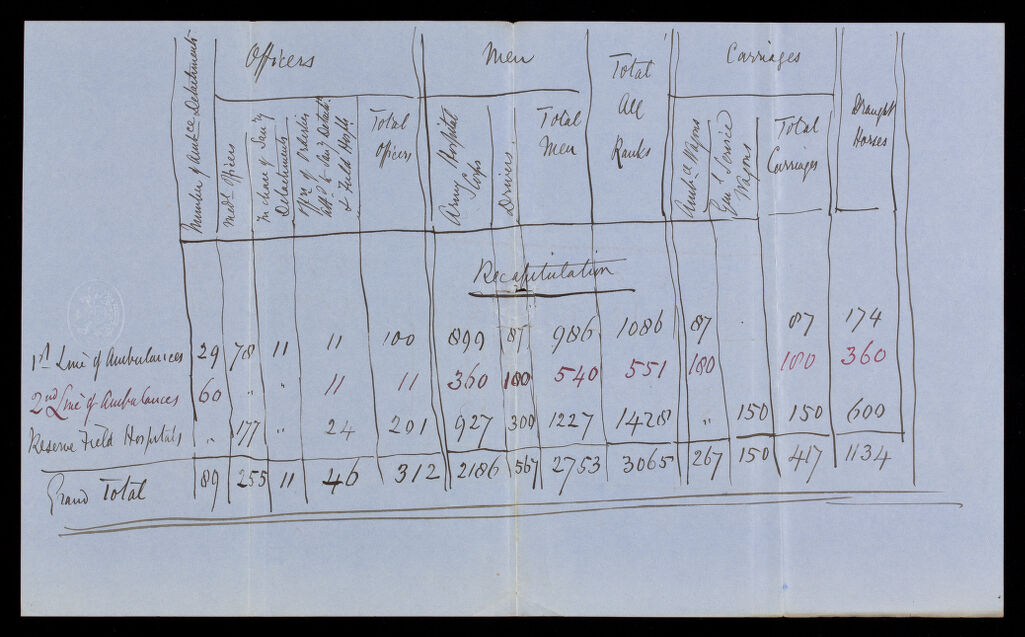 Officers Men Total All Ranks Carriages Draught Horses
Number of Ambce Detachments
Medl Officers
In charge of Sany Detachments
Offrs of Orderlies attd to Sany Detacht & Field Hospls
Total Officers
Army Hospital Corps
Drivers
Total Men
Ambce Wagons
Genl Service Wagons
Total Carriages
Recapitulation
1st Line of Ambulances 29 78 11 11 100 899 87 986 1086 87 . 87 174
2nd Line of Ambulances 60 " " 11 11 360 180 540 551 180 180 360
Reserve Field Hospitals " 177 " 24 201 927 300 1227 1428 " 150 150 600
Grand Total 89 255 11 46 312 2186 567 2753 3065 267 150 417 1134